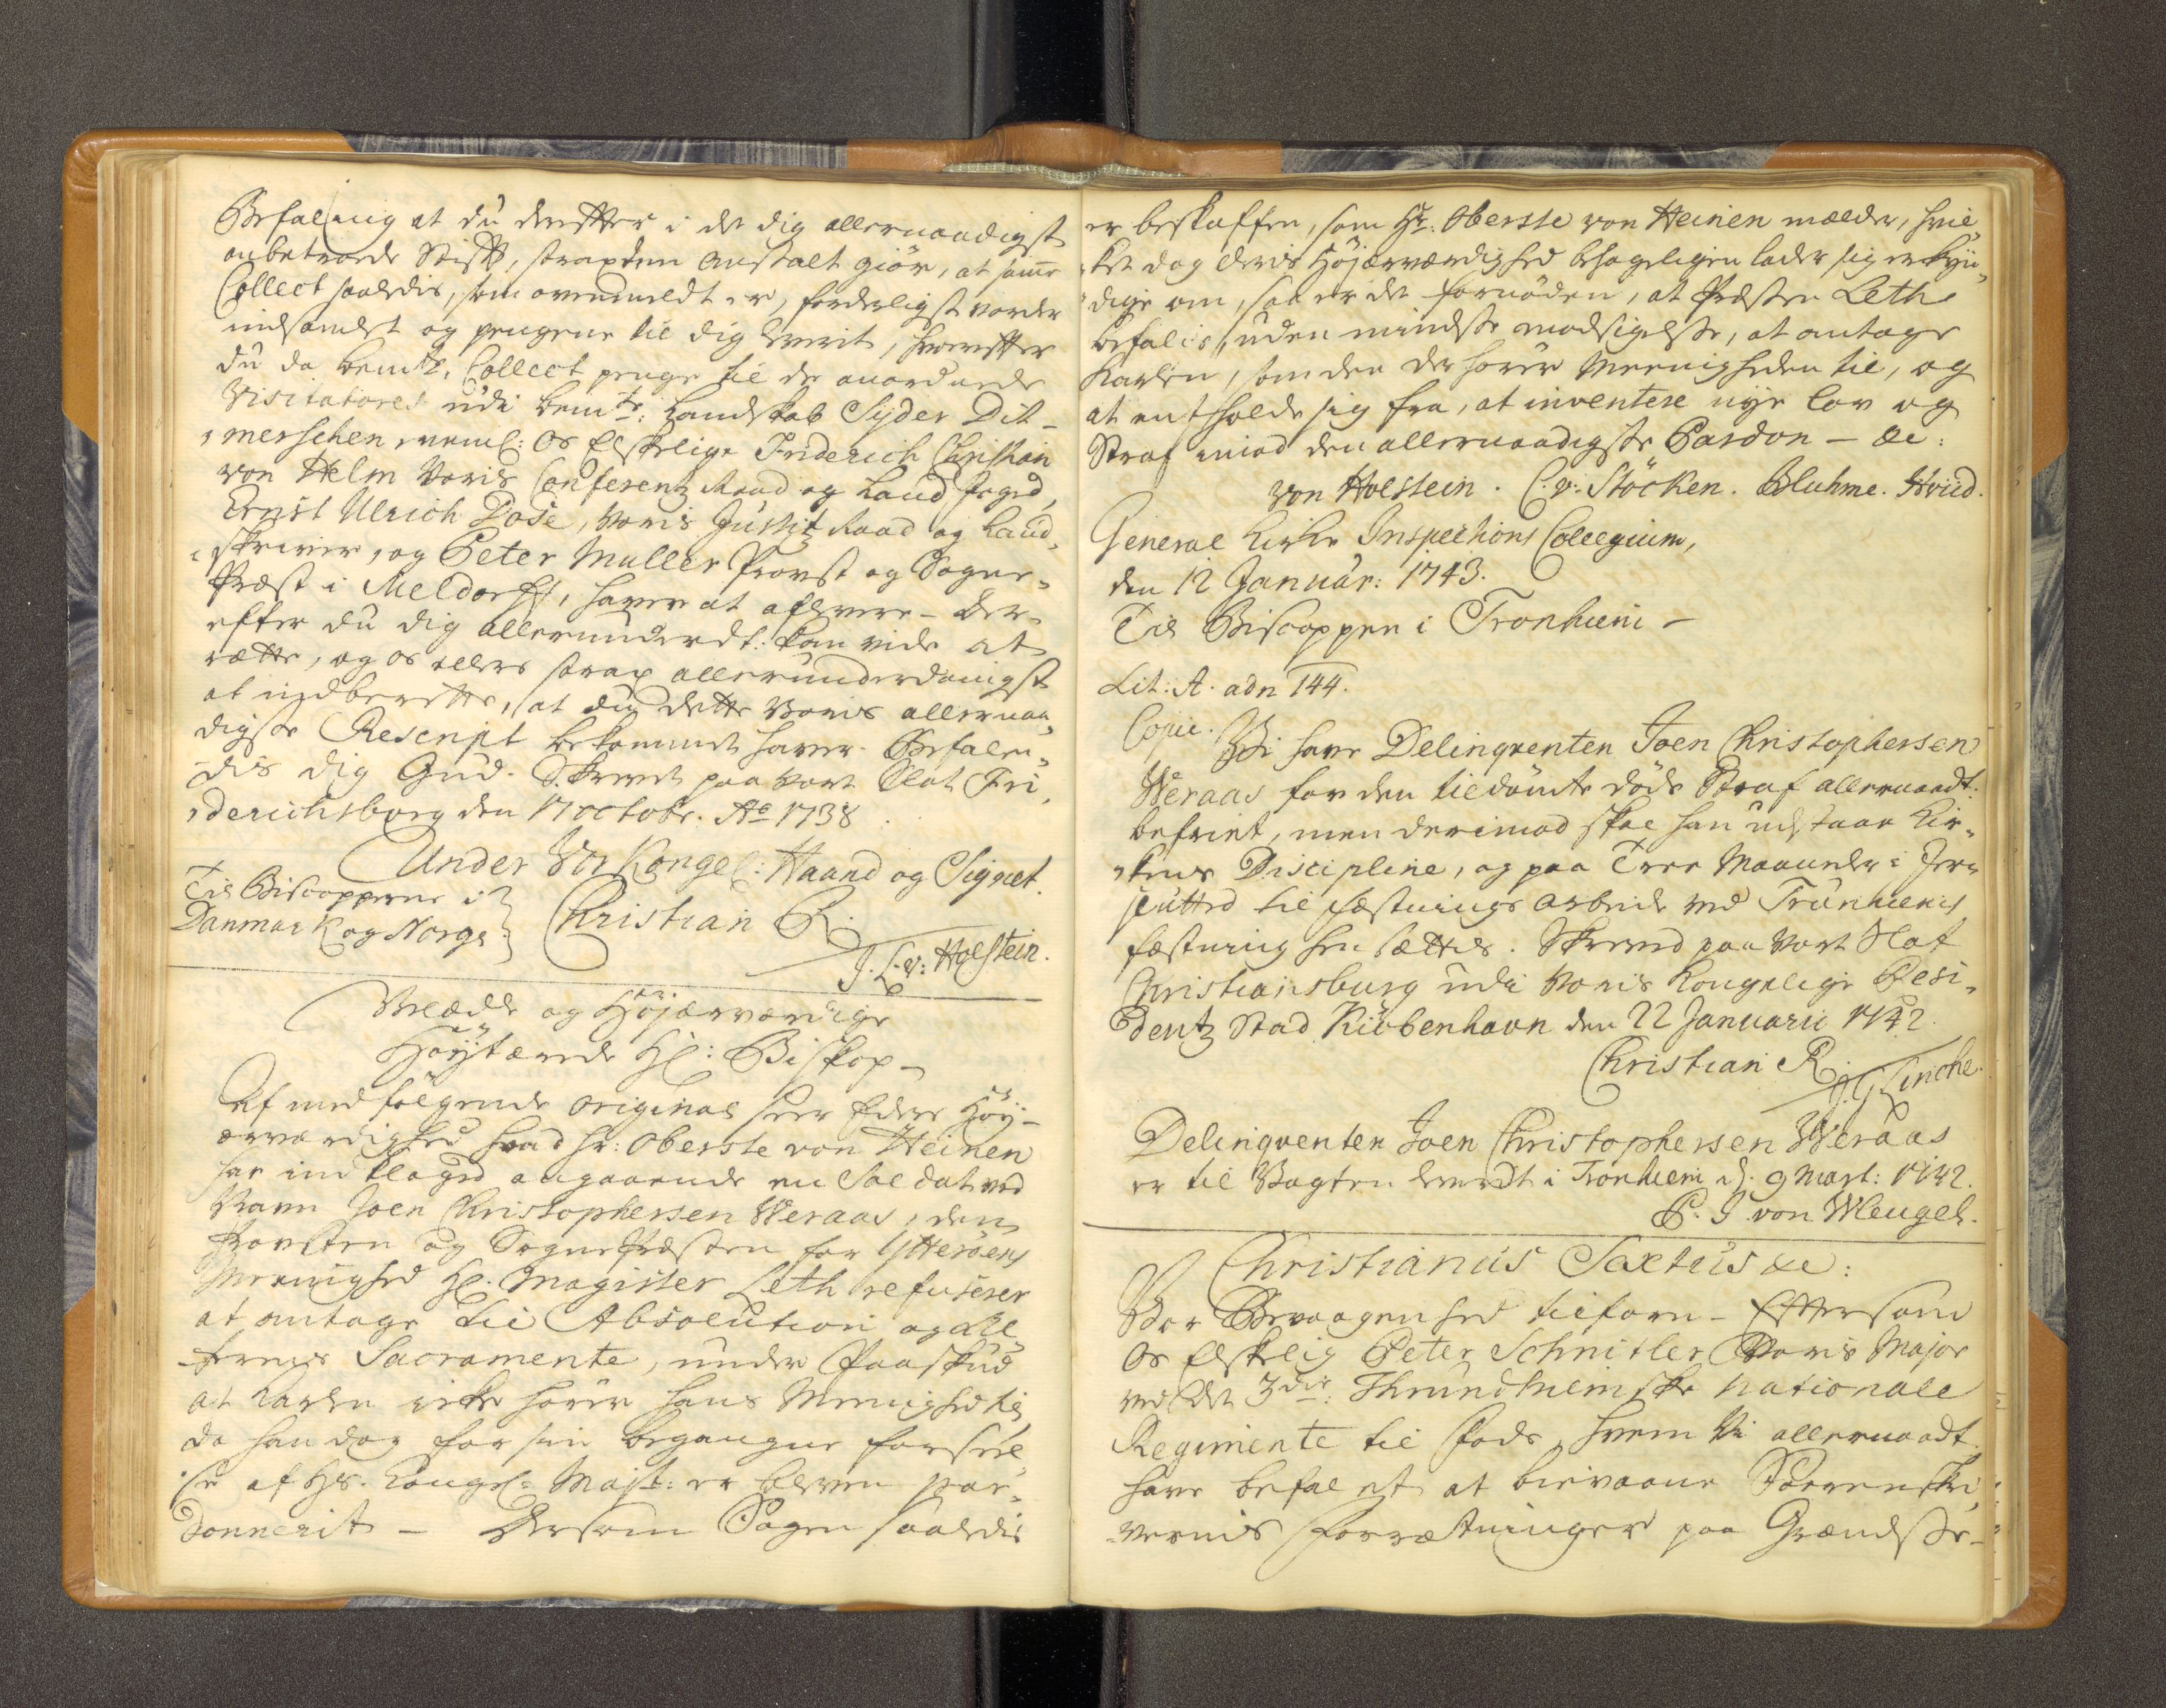 Befaling at du derefter i det dig allernaadigst
anbetroede Stift, strax den Anstalt giör, at samme
Collect saaledis, som ovenmeldt er, forderligst vorder
indsamlet og pengene til dig leverit, hvorefter
du da bemte. Collect penge til de anordnede
Visitatores udi bemte: Landskab Syder Dit-
merschen nemlig: Os Elskelige Friderich Christian
von Helm Voris Conferentz Raad og Land foged,
Ernst Ulrich Dose, Voris Justitz Raad og Land-
skriver, og Peter Muller Provst og Sogne-
Præst i Meldorff, haver at aflevere - Der-
efter du dig allerunderdt: kan vide at
rætte, og os ellers strax allerunderdanigst
at indberette, at du dette Voris allernaa-
digste Rescript bekommet haver. Befalen-
dis dig Gud. Skrevet paa vort Slot Fri-
derichsborg den 17 octobr. Ao 1738.
Under Vor Kongel: Haand og Signet.
Til Biscopperne i
Danmark og Norge.
Christian R.
J. L. v: Holstein.
Velædle og Höjærværdige
Höytærede Hr: Biskop -
Af medfölgende original seer Eders Höy-
ærværdighed hvad Hr: Oberste von Heinen
har indklaged angaaende en Soldat ved
Navn Joen Christophersen Weraas, den
Provsten og Sognepræsten for Ytteröens
Menighed Hr. Magister Leth refuserer
at antage til Absolution og Al-
terens Sacramente, under Paaskud
at Karlen icke hörer hans Menighed til,
da han dog for sin begangne forseel-
se af Hs. Kongel: Majt: er bleven par-
donnerit - Dersom Sagen saaledis
er beskaffen, som Hr: Oberste von Heinen melder, hvil-
ket dog Deris Höjærværdighed behageligen lader sig erkyn-
dige om, saa er det fornöden, at Præsten Leth
befalis, uden mindste modsigelse, at antage
Karlen, som den der hörer Meenigheden til, og
at entholde sig fra, at inventere nye Lov og
Straf imod den allernaadigste Pardon - &c:
von Holstein. C. v: Stöcken. Bluhme. Hviid.
General Kirke Inspections Collegium,
den 12 Januar: 1743.
Til Biscoppen i Tronhiem -
Lit: A. ad n 144.
Copie.
Vi have Delinqventen Joen Christophersen
Weraas for den tildömte döds Straf allernaadt.
befriet, men derimod skal han udstaae Kir-
kens Discipline, og paa Tree Maaneder i Jern
slutted til fæstnings Arbeide ved Trunhiems
fæstning hensættes. Skreved paa vort Slot
Christiansburg udi Voris Kongelige Resi-
dentz Stad Kiöbenhavn den 22 Januarii 1742.
Christian R.
Delinqventen Joen Christophersen Weraas
er til Vagten leveredt i Tronhiem d: 9 Mart: 1742.
P. J. von Wleugel.
Christianus Sextus &c:
Vor Bevaagenhed tilforn - Eftersom
Os Elskelig Peter Schnitler Voris Major
ved det 3die: Thrundhiemske Nationale
Regimente til Fods, hvem Vi allernaadt.
have befalet at bievaane Svenske
vernis forrætninger paa Grændse-